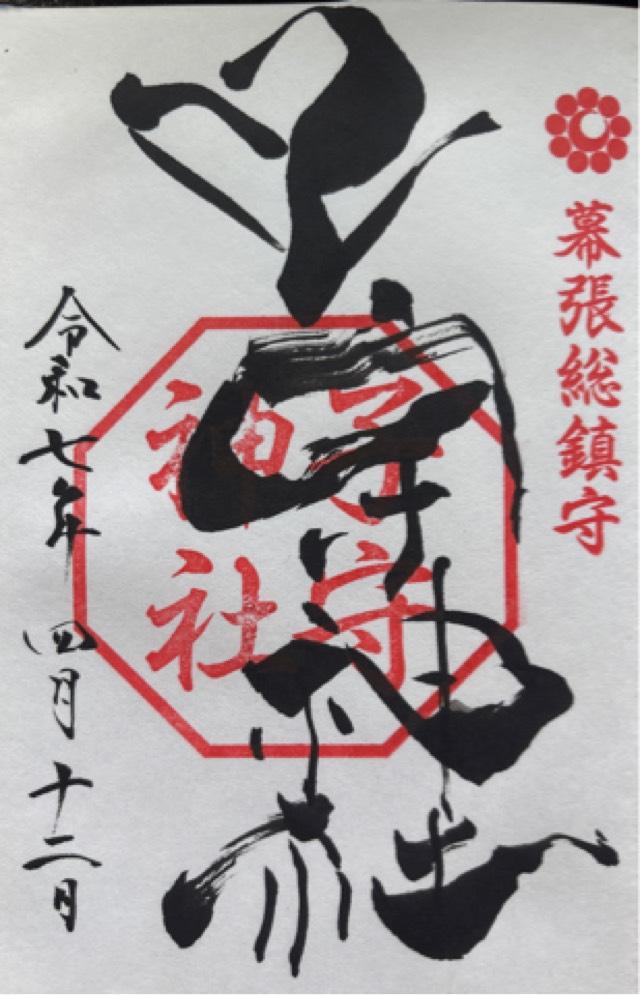 幕張総鎮守
子守神社
子守
神社
令和七年 四月 十二日